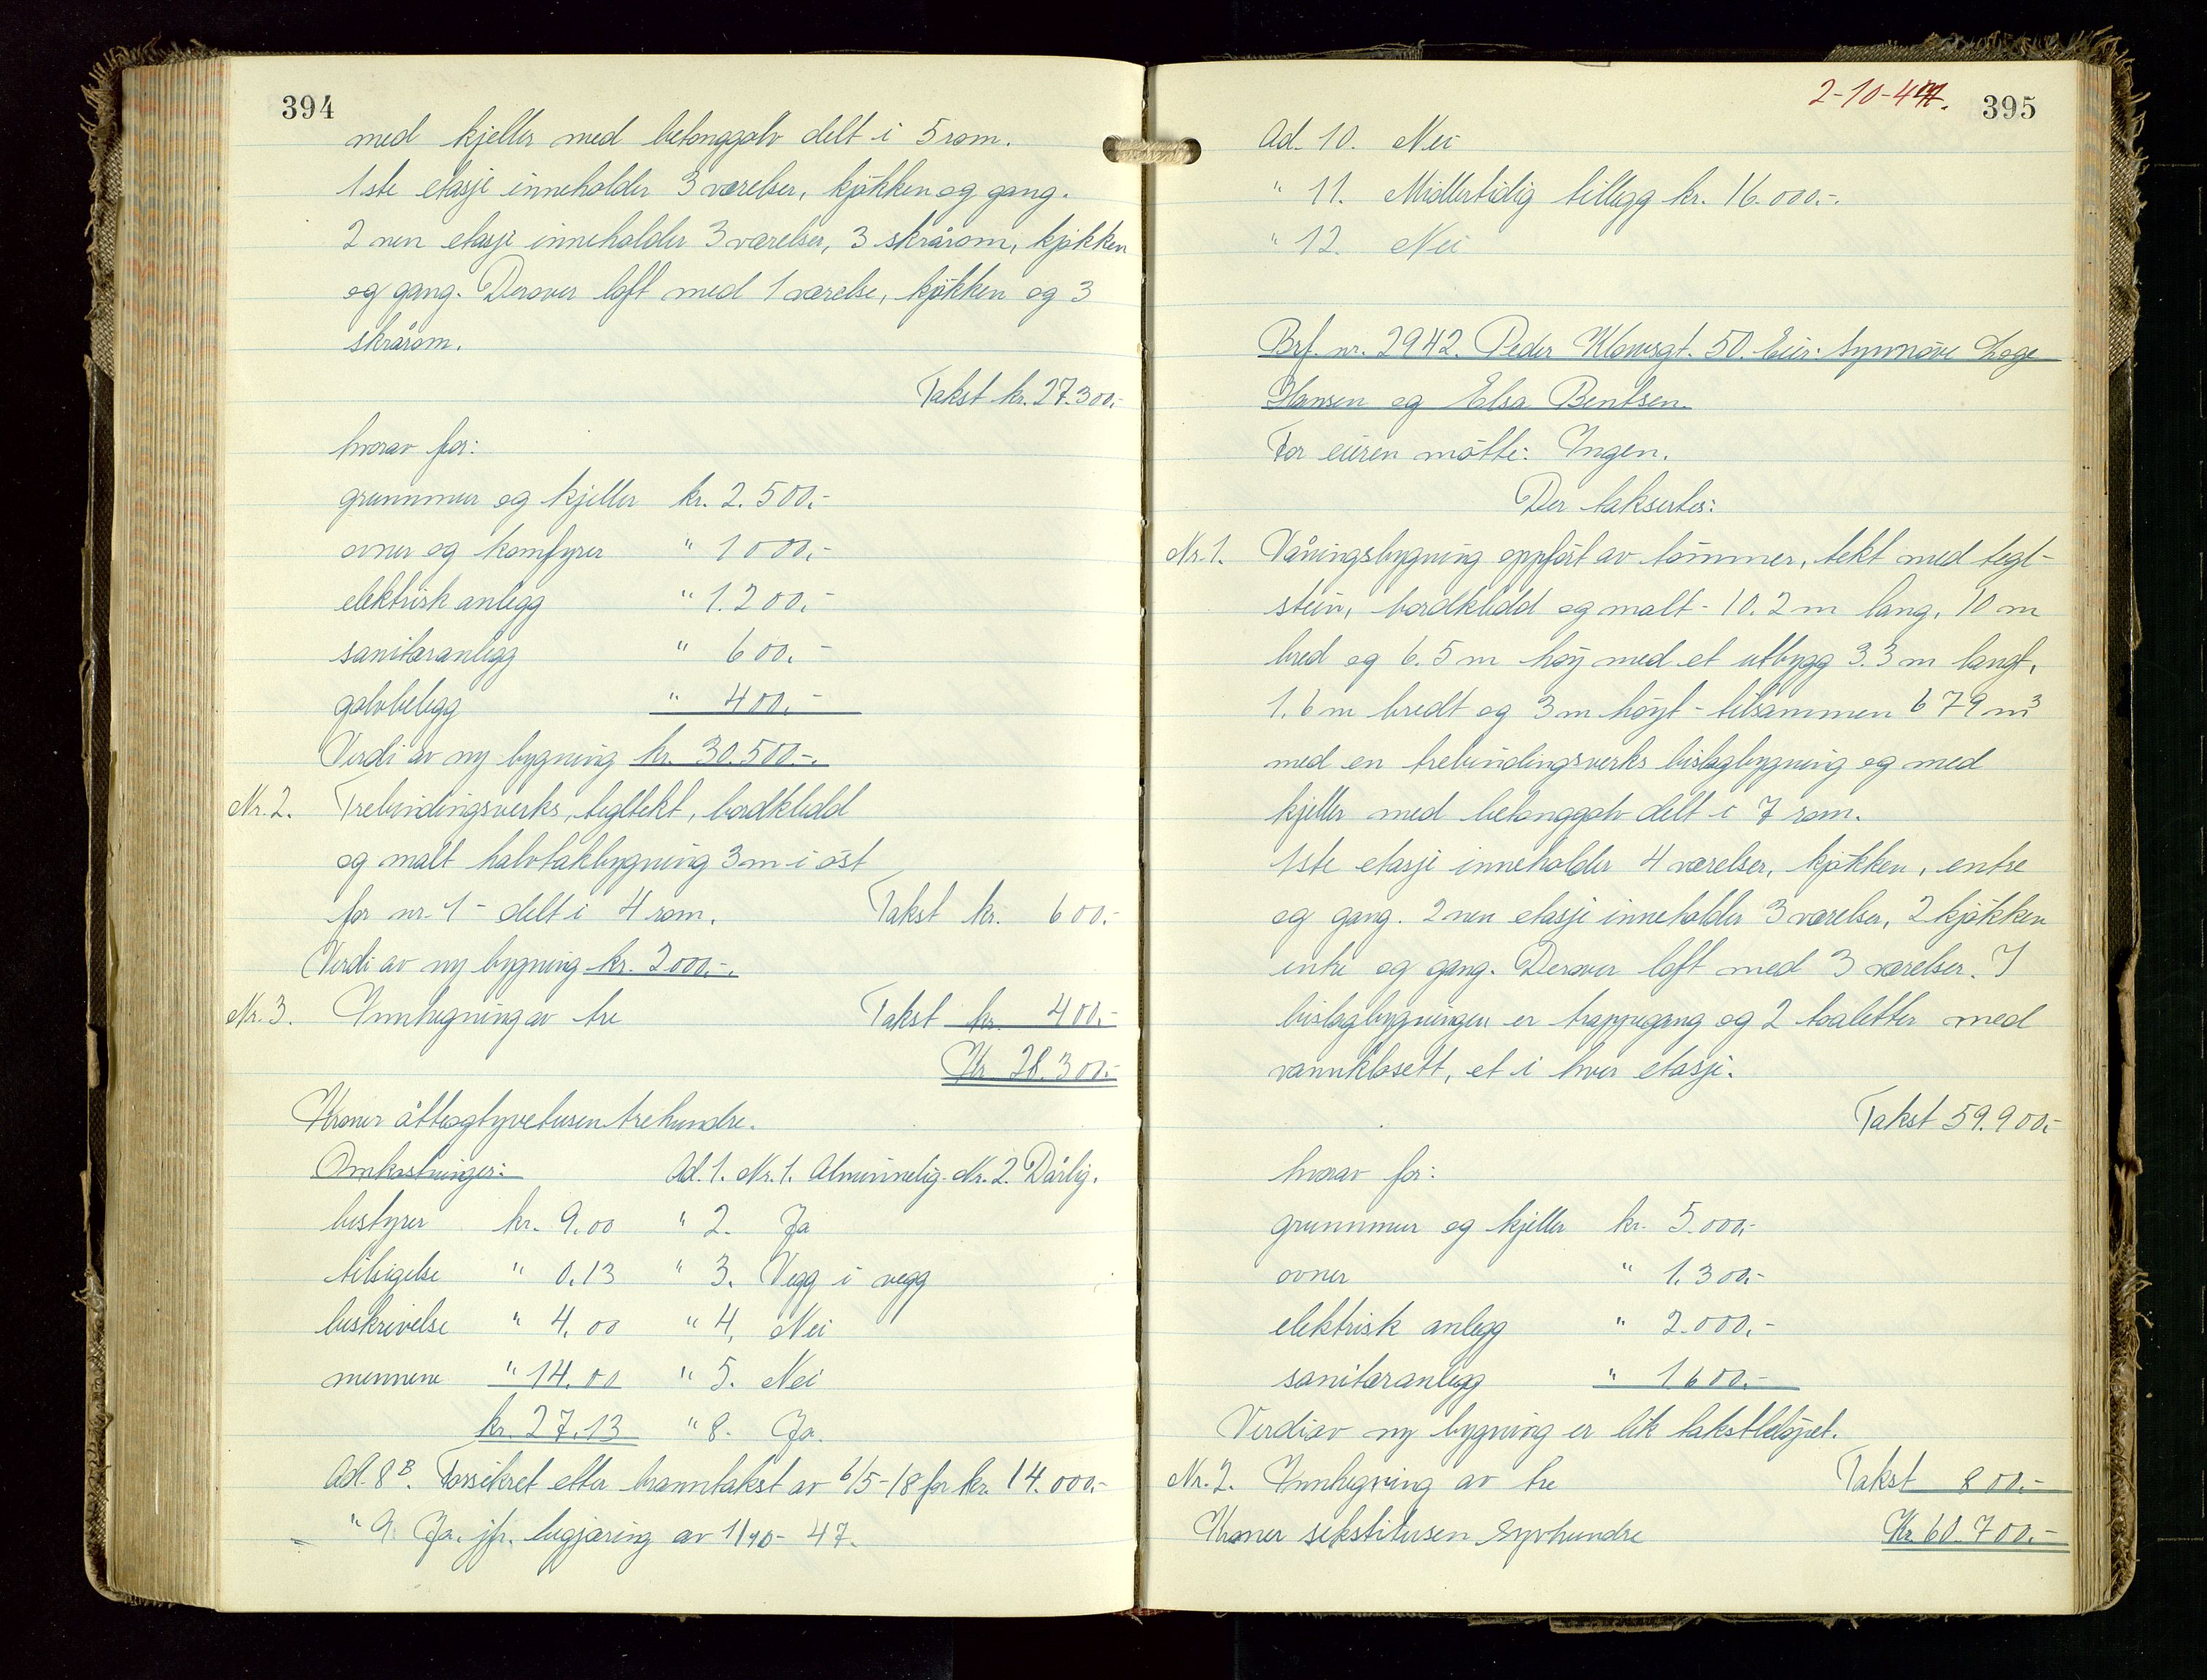 394
med kjeller med betonggolv delt i 5 rom.
1ste etasje inneholder 3 værelser, kjøkken og gang.
2nen etasje inneholder 3 værelser, 3 skrårom, kjøkken
og gang. Derover loft med 1 værelse, kjøkken og 3
skrårom.
Takst kr. 27.300.-
hvorav for:
grunnmur og kjeller kr. 2.500.-
ovner og komfyrer " 1000.-
elektrisk anlegg " 1.200.-
sanitæranlegg " 600.-
golvbelegg " 400.-
Verdi av ny bygning kr. 30.500.-.
Nr. 2. Trebindingsverks, tegltekt, bordkledd
og malt halvtakbygning 3 m i øst
for nr. 1 - delt i 4 rom. Takst kr. 600.-
Verdi av ny bygning kr. 2000.-.
Nr. 3. Innhegning av tre Takst kr. 400.-
Kr. 28.300.-
Kroner åtteogtyvetusentrehundre.
Omkostninger: Ad. 1. Nr. 1. Alminnelig. Nr. 2. Dårlig.
bestyrer kr. 9.00 " 2. Ja
tilsigelse " 0.13 " 3. Vegg i vegg
beskrivelse " 4.00 " 4. Nei
mennene " 14.00 " 5. Nei
kr. 27.13 " 8. Ja.
Ad. 8B. Forsikret etter branntakst av 6/5-18 for kr. 14.000.-
" 9. Ja. jfr. begjæring av 1/10-47.
2-10-47. 395
Ad. 10. Nei
" 11. Midlertidig tillegg kr. 16.000.-.
" 12. Nei
Brf. nr. 2942. Peder Klowsgt. 50. Eier: Synnøve Loge
Hansen og Elsa Bentsen.
For eieren møtte: Ingen.
Der taksertes:
Nr. 1. Våningsbygning oppført av tømmer, tekt med tegl-
stein, bordkledd og malt - 10.2 m lang, 10 m
bred og 6.5 m høy med et utbygg 3.3 m langt,
1.6 m bredt og 3 m høyt - tilsammen 679 m3
med en trebindingsverks bislagbygning og med
kjeller med betonggolv delt i 7 rom.
1ste etasje inneholder 4 værelser, kjøkken, entre
og gang. 2nen etasje inneholder 3 værelser, 2 kjøkken
entre og gang. Derover loft med 3 værelser. I
bislagbygningen er trappegang og 2 toaletter med
vannklosett, et i hver etasje.
Takst 59.900.-
hvorav for:
grunnmur og kjeller kr. 5.000.-
ovner " 1.300.-
elektrisk anlegg " 2.000.-
sanitæranlegg " 1600.-
Verdi av ny bygning er lik takstbeløpet.
Nr. 2. Innhegning av tre Takst 800.-
Kroner sekstitusen syvhundre Kr. 60.700.-